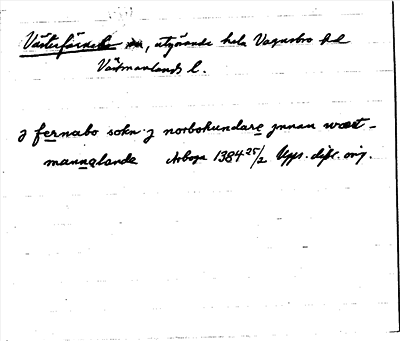 Västerfärnebo sn, utgörande hela Vagnsbro hd
Västmanlands l.
J fernabo sokn j norbohundare jnnan wæst-
mannalande Arboga 1384 25/2 Upps. dipl. orig.